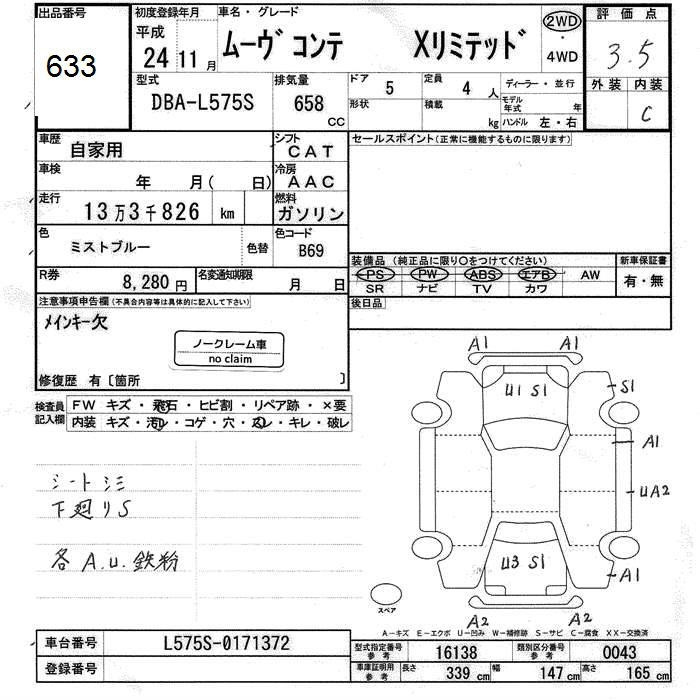 出品番号 初度登録年月 車名・グレード 2WD 評価点
633 平成 24 11月 ムーヴ コンテ Xリミテッド ・ 4WD 3.5
型式 排気量 ドア 5 定員 4人 ディーラー・並行 外装 内装
DBA-L575S 658 CC 形状 積載 kg モデル年式 年 C
ハンドル 左・右
車歴 自家用 シフト CAT セールスポイント(正常に機能するものに限ります)
車検 年 月( 日) 冷房 AAC
走行 13万3千826 km 燃料 ガソリン
色 ミストブルー 色替 色コード B69
装備品 (純正品に限り○をつけてください) 新車保証書
R券 8,280円 名変通知期限 月 日 PS PW ABS エアB AW 有・無
SR ナビ TV カワ
注意事項申告欄(不具合内容等は具体的に記入して下さい) 後日品
メインキー欠
ノークレーム車
no claim
修復歴 有〔箇所 〕
検査員記入欄 FW キズ・飛石・ヒビ割・リペア跡・×要
内装 キズ・汚レ・コゲ・穴・スレ・キレ・破レ
シートシミ
下廻りS
各A.U.鉄粉
A1 A1
U1 S1 S1
A1
UA2
U3 S1 A1
A2 A2
スペア
A-キズ E-エクボ U-凹み W-補修跡 S-サビ C-腐食 XX-交換済
車台番号 L575S-0171372 型式指定番号 参考 16138 類別区分番号 参考 0043
登録番号 車庫証明用 参考 長さ 339 cm 幅 147 cm 高さ 165 cm